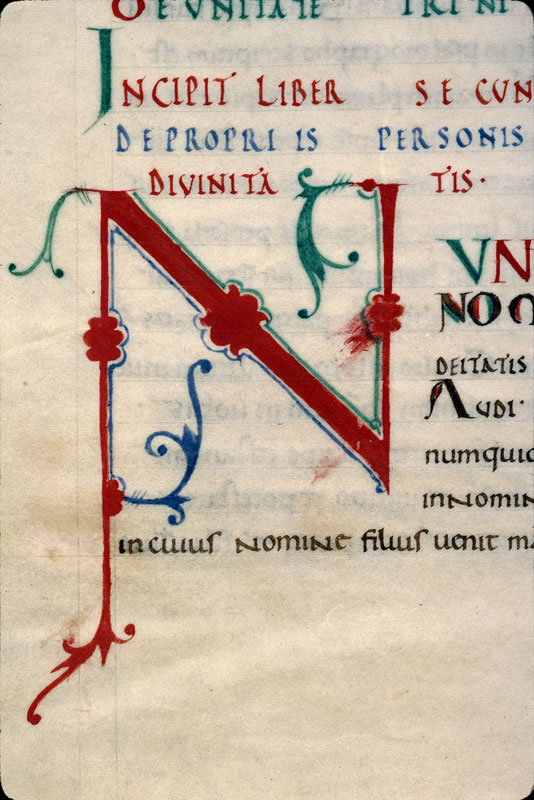 DE VNITATE TRINI
INCIPIT LIBER SECUN
DE PROPRIIS PERSONIS
DIVINITATIS·
N VN
NOM
DEITATIS
AUDI·
numquid
in nomin
in cuius nomine filius uenit